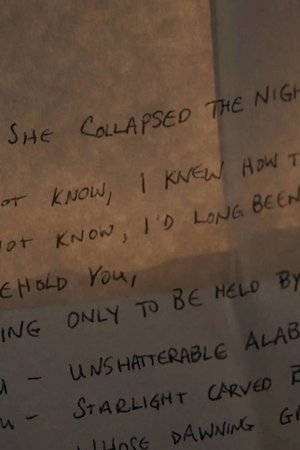 SHE COLLAPSED THE NIGH
OT KNOW, I KNEW HOW T
OT KNOW, I'D LONG BEEN
EHOLD YOU,
ING ONLY TO BE HELD BY
U - UNSHATTERABLE ALAB
U - STARLIGHT CARVED
WHOSE DAWNING G